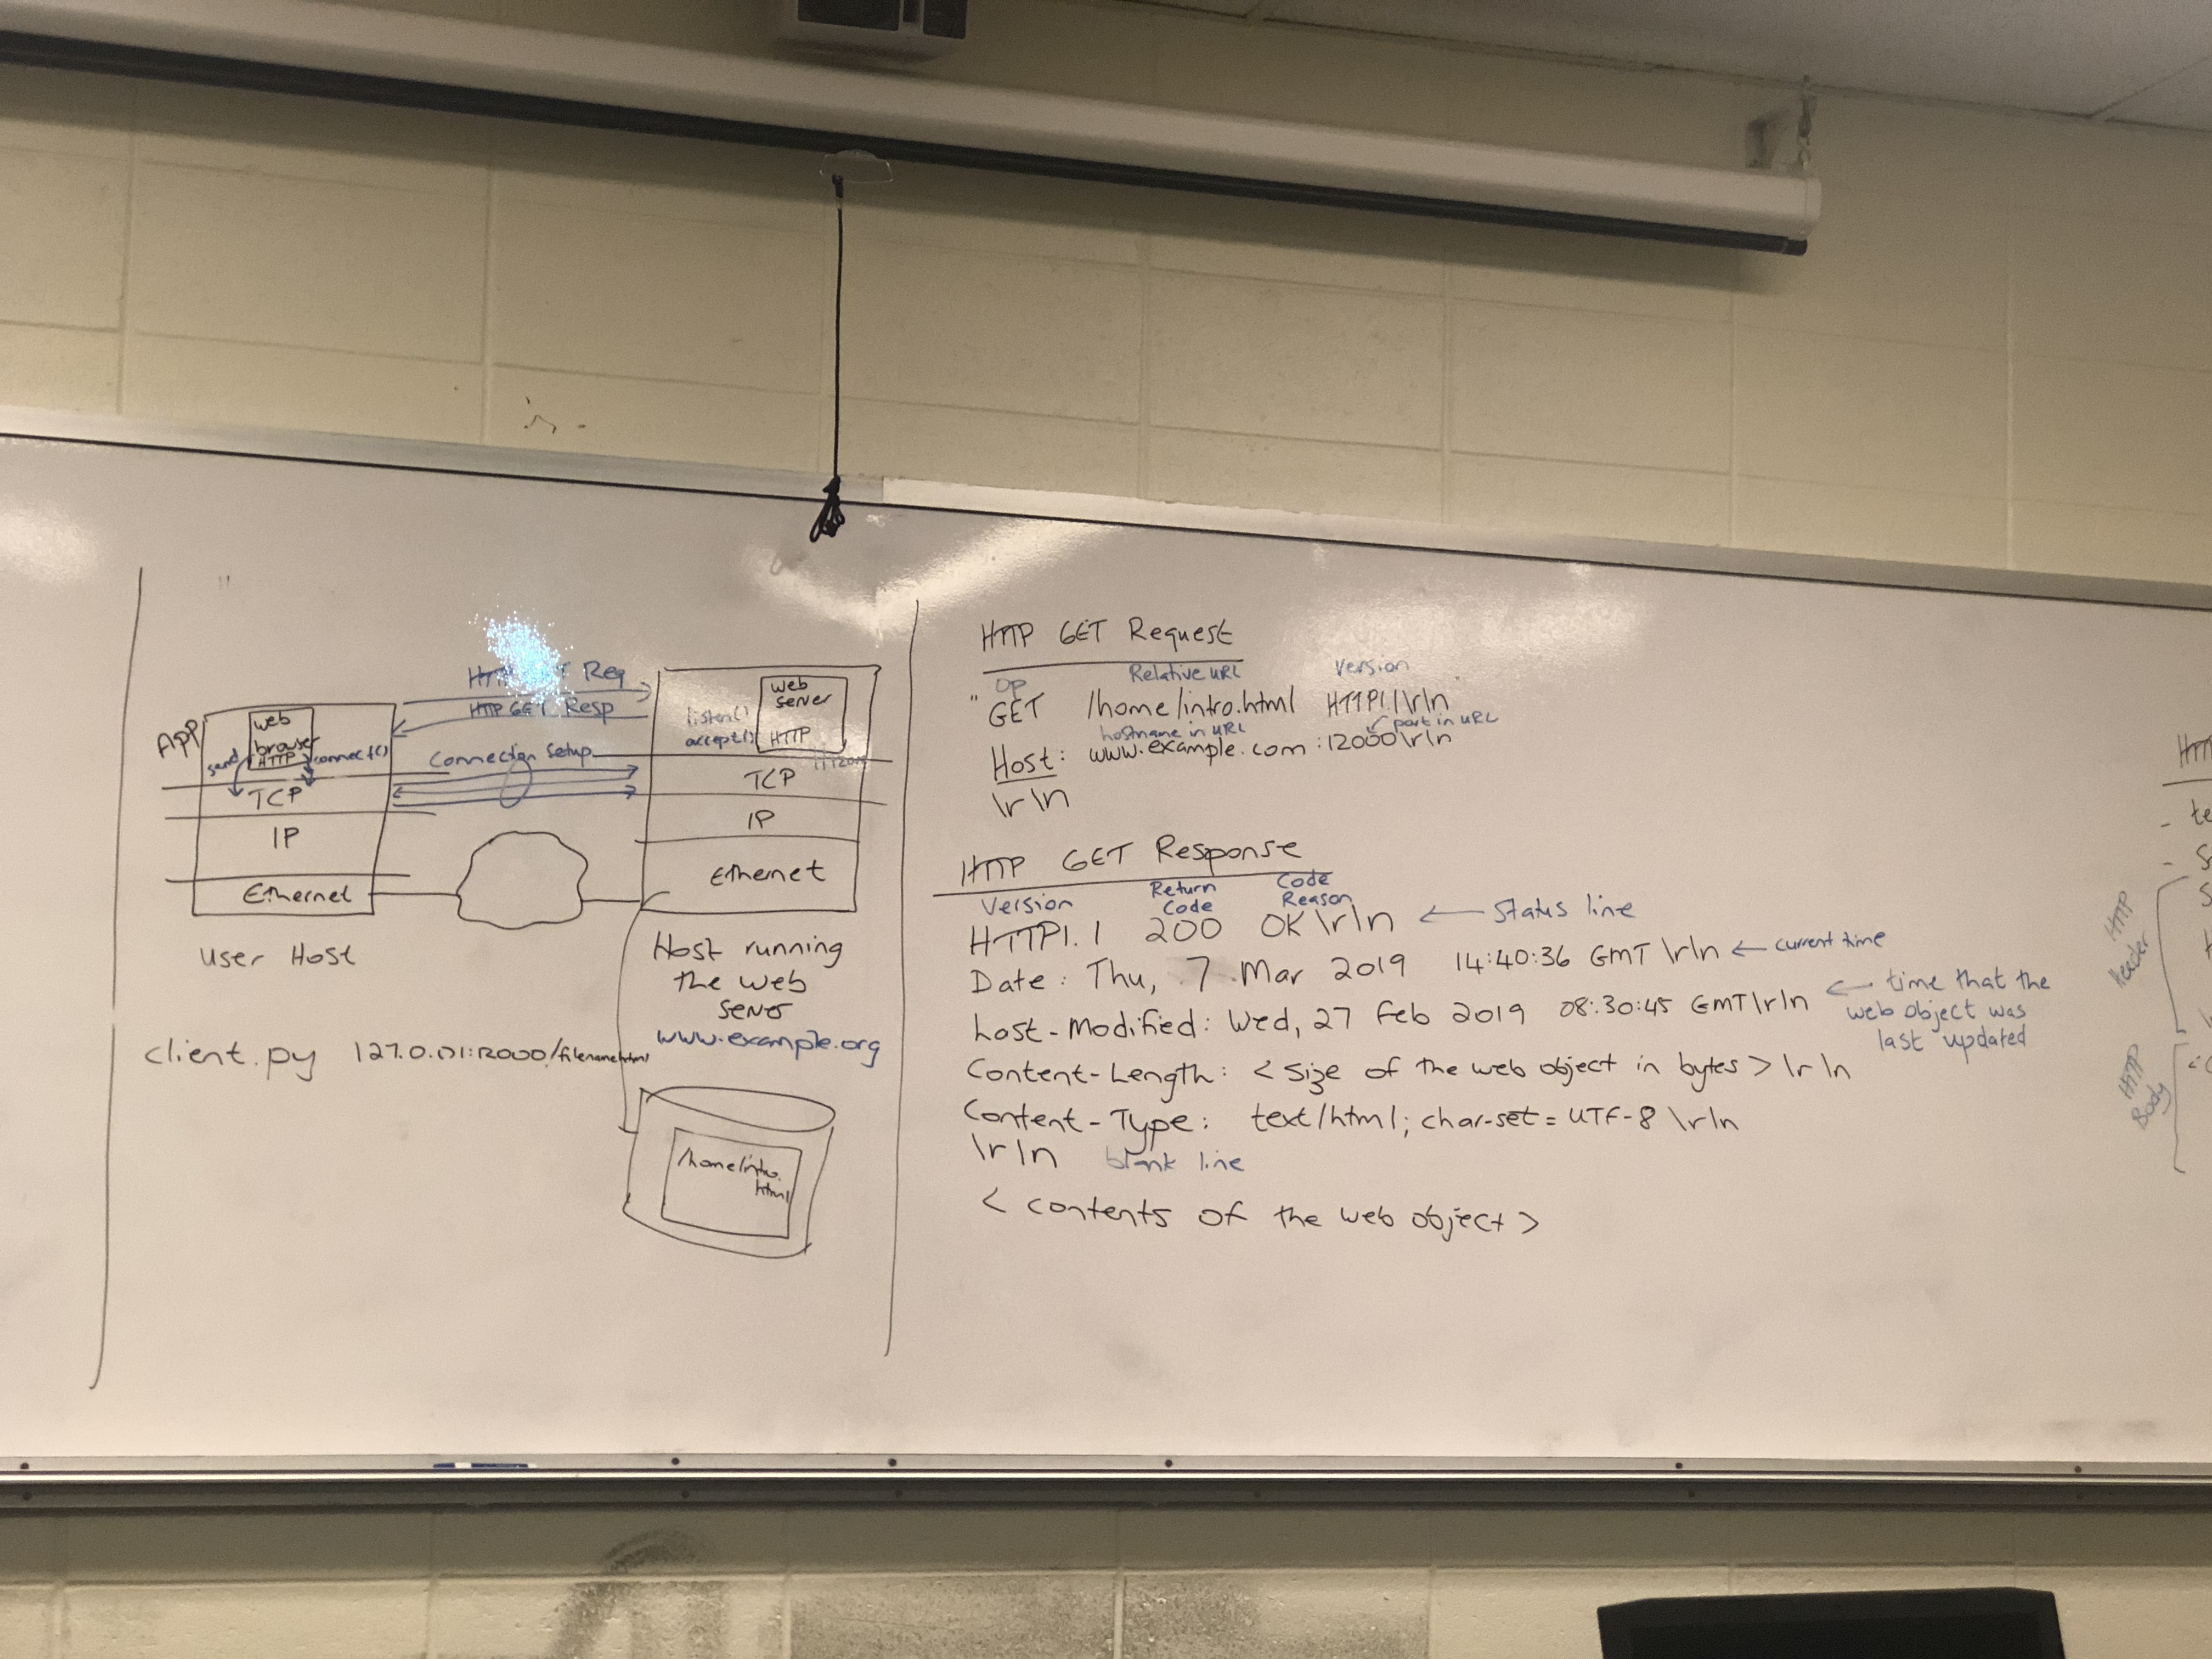 HTTP GET Req
HTTP GET Resp
App
web
browser
HTTP
send
connect()
Connection Setup
TCP
IP
Ethernet
User Host
web
server
HTTP
listen()
accept()
TCP
IP
Ethernet
Host running
the web
server
www.example.org
client.py 127.0.0.1:12000/filename.html
/home/intro.
html
HTTP GET Request
Op Relative URL Version
"GET /home/intro.html HTTP1.1\r\n
hostname in URL port in URL
Host: www.example.com:12000\r\n
\r\n
HTTP GET Response
Version Return Code Code Reason
HTTP1.1 200 OK\r\n ← Status line
Date: Thu, 7 Mar 2019 14:40:36 GMT\r\n ← current time
Last-Modified: Wed, 27 Feb 2019 08:30:45 GMT\r\n ← time that the
web object was
last updated
Content-Length: <size of the web object in bytes>\r\n
Content-Type: text/html; char-set=UTF-8\r\n
\r\n blank line
<contents of the web object>
HTTP
header
HTTP
Body